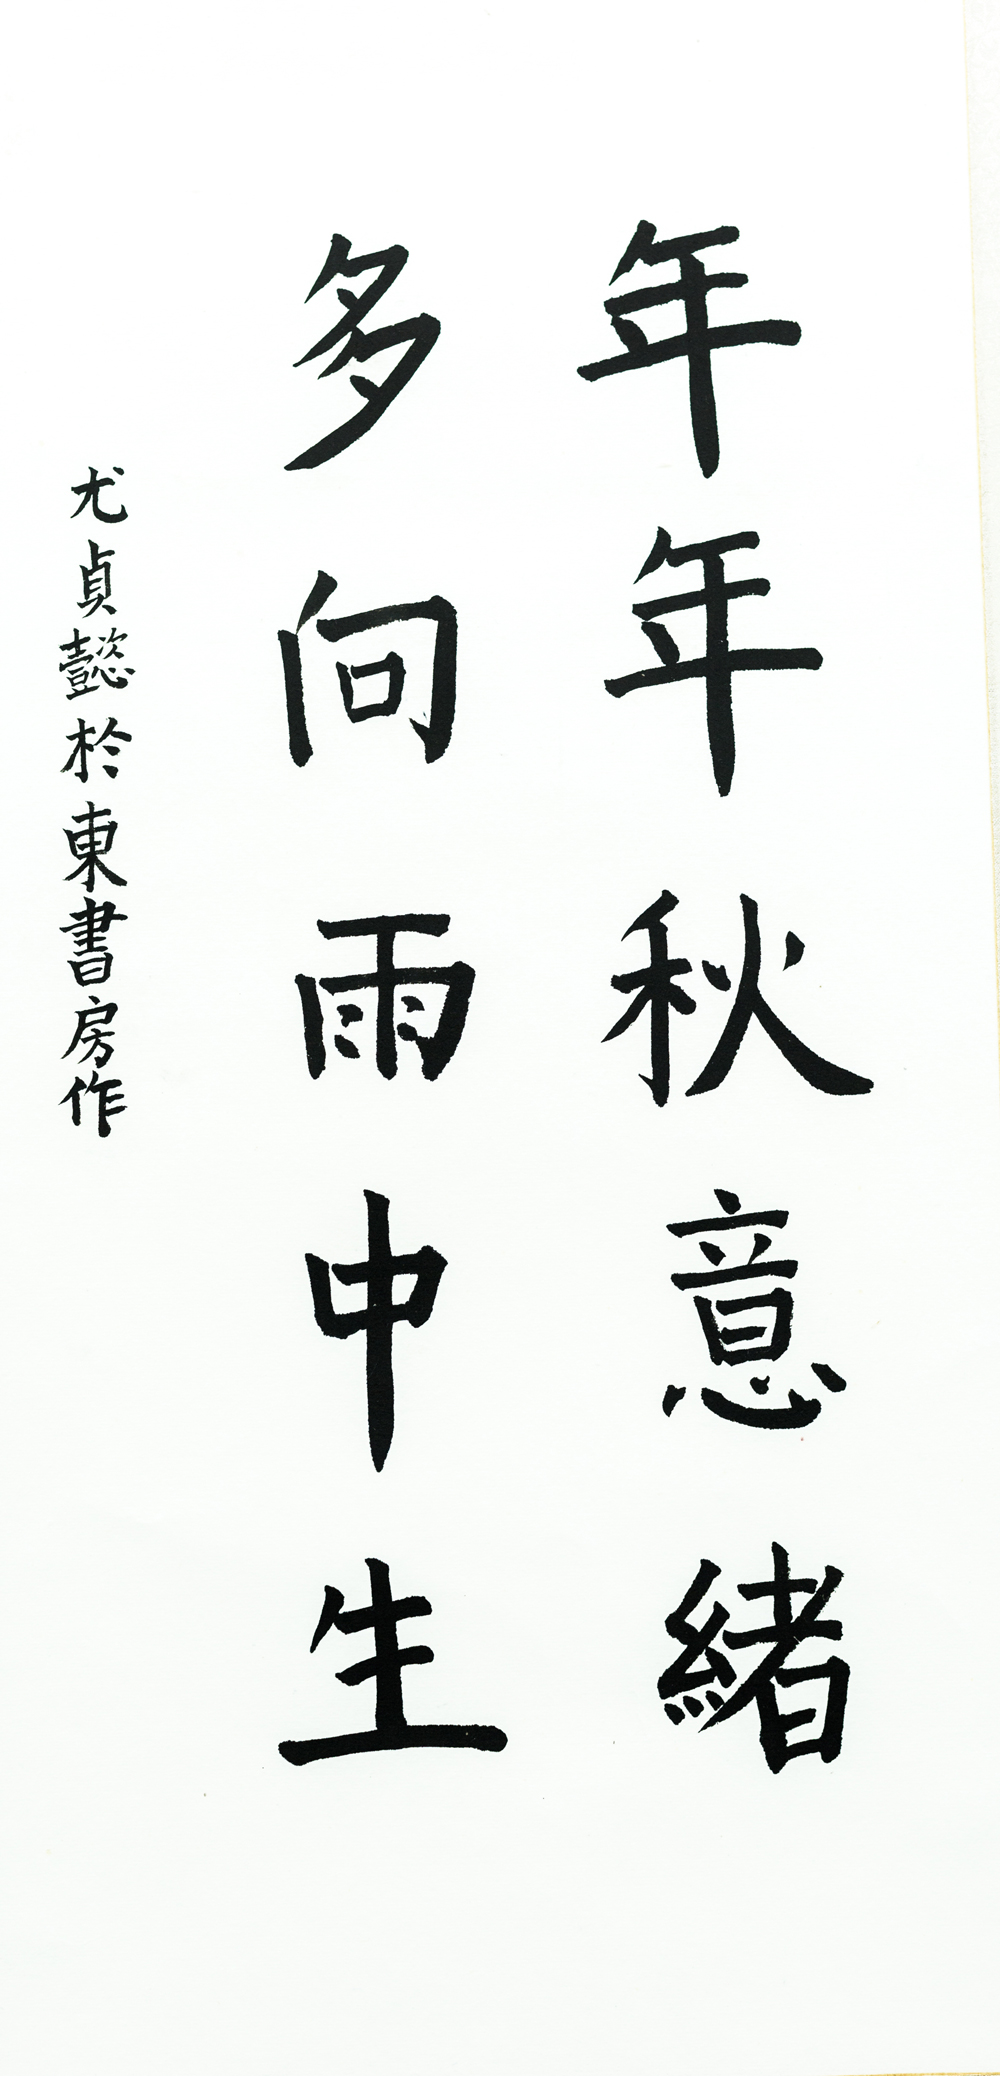 年年秋意緒
多向雨中生
尤貞懿於東書房作